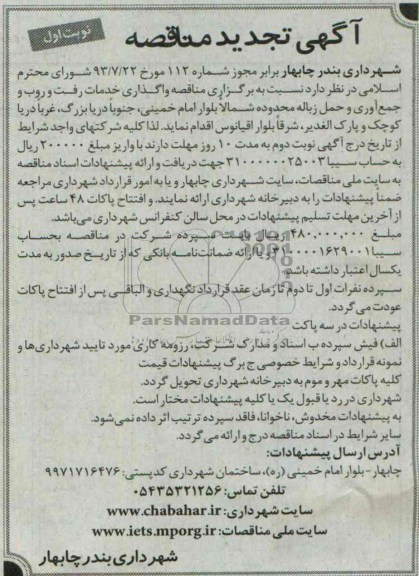 نوبت اول
آگهی تجدید مناقصه
شهرداری بندر چابهار برابر مجوز شماره ۱۱۲ مورخ ۹۳/۷/۲۲ شورای محترم
اسلامی در نظر دارد نسبت به برگزاری مناقصه واگذاری خدمات رفت و روب و
جمع‌آوری و حمل زباله محدوده شمالاً بلوار امام خمینی، جنوباً دریا بزرگ، غرباً دریا
کوچک و پارک الغدیر، شرقاً بلوار اقیانوس اقدام نماید. لذا کلیه شرکتهای واجد شرایط
از تاریخ درج آگهی نوبت دوم به مدت ۱۰ روز مهلت دارند با واریز مبلغ ۲۰۰۰۰۰ ریال
به حساب سیبا ۳۱۰۰۰۰۰۰۲۵۰۰۳ جهت دریافت و ارائه پیشنهادات اسناد مناقصه
به سایت ملی مناقصات، سایت شهرداری چابهار و یا به امور قرارداد شهرداری مراجعه
ضمناً پیشنهادات را به دبیرخانه شهرداری ارائه نمایند. و افتتاح پاکات ۴۸ ساعت پس
از آخرین مهلت تسلیم پیشنهادات در محل سالن کنفرانس شهرداری می‌باشد.
مبلغ ۴۸۰,۰۰۰,۰۰۰ ریال بابت سپرده شرکت در مناقصه بحساب
سیبا و یا ارائه ضمانت‌نامه بانکی که از تاریخ صدور به مدت
یکسال اعتبار داشته باشد
سپرده نفرات اول تا دوم تا زمان عقد قرارداد نگهداری و الباقی پس از افتتاح پاکات
عودت می‌گردد.
ParsNamadData
پیشنهادات در سه پاکت
الف) فیش سپرده ب اسناد و مدارک شرکت، رزومه کاری مورد تایید شهرداری‌ها و
نمونه قرارداد و شرایط خصوصی ج برگ پیشنهادات قیمت
کلیه پاکات مهر و موم به دبیرخانه شهرداری تحویل گردد.
شهرداری در رد یا قبول یک یا کلیه پیشنهادات مختار است.
به پیشنهادات مخدوش، ناخوانا، فاقد سپرده ترتیب اثر داده نمی‌شود.
سایر شرایط در اسناد مناقصه درج و ارائه می‌گردد.
آدرس ارسال پیشنهادات:
چابهار-بلوار امام خمینی (ره)، ساختمان شهرداری کدپستی: ۹۹۷۱۷۱۶۴۷۶
تلفن تماس: ۰۵۴۳۵۳۲۱۲۵۶
سایت شهرداری: www.chabahar.ir
سایت ملی مناقصات: www.iets.mporg.ir
شهرداری بندر چابهار